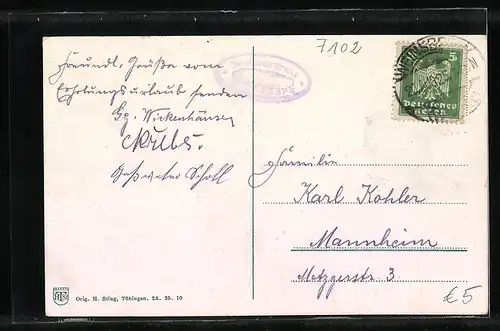 7102
Freundl. Grüße vom
Erholungsurlaub senden
Gg. Wickenhäuser
Familie
Karl Kohler
Mannheim
Metzgerstr 3
5
Deutsches
Reich
Orig. H. Sting, Tübingen. 2A. 25. 10
€5